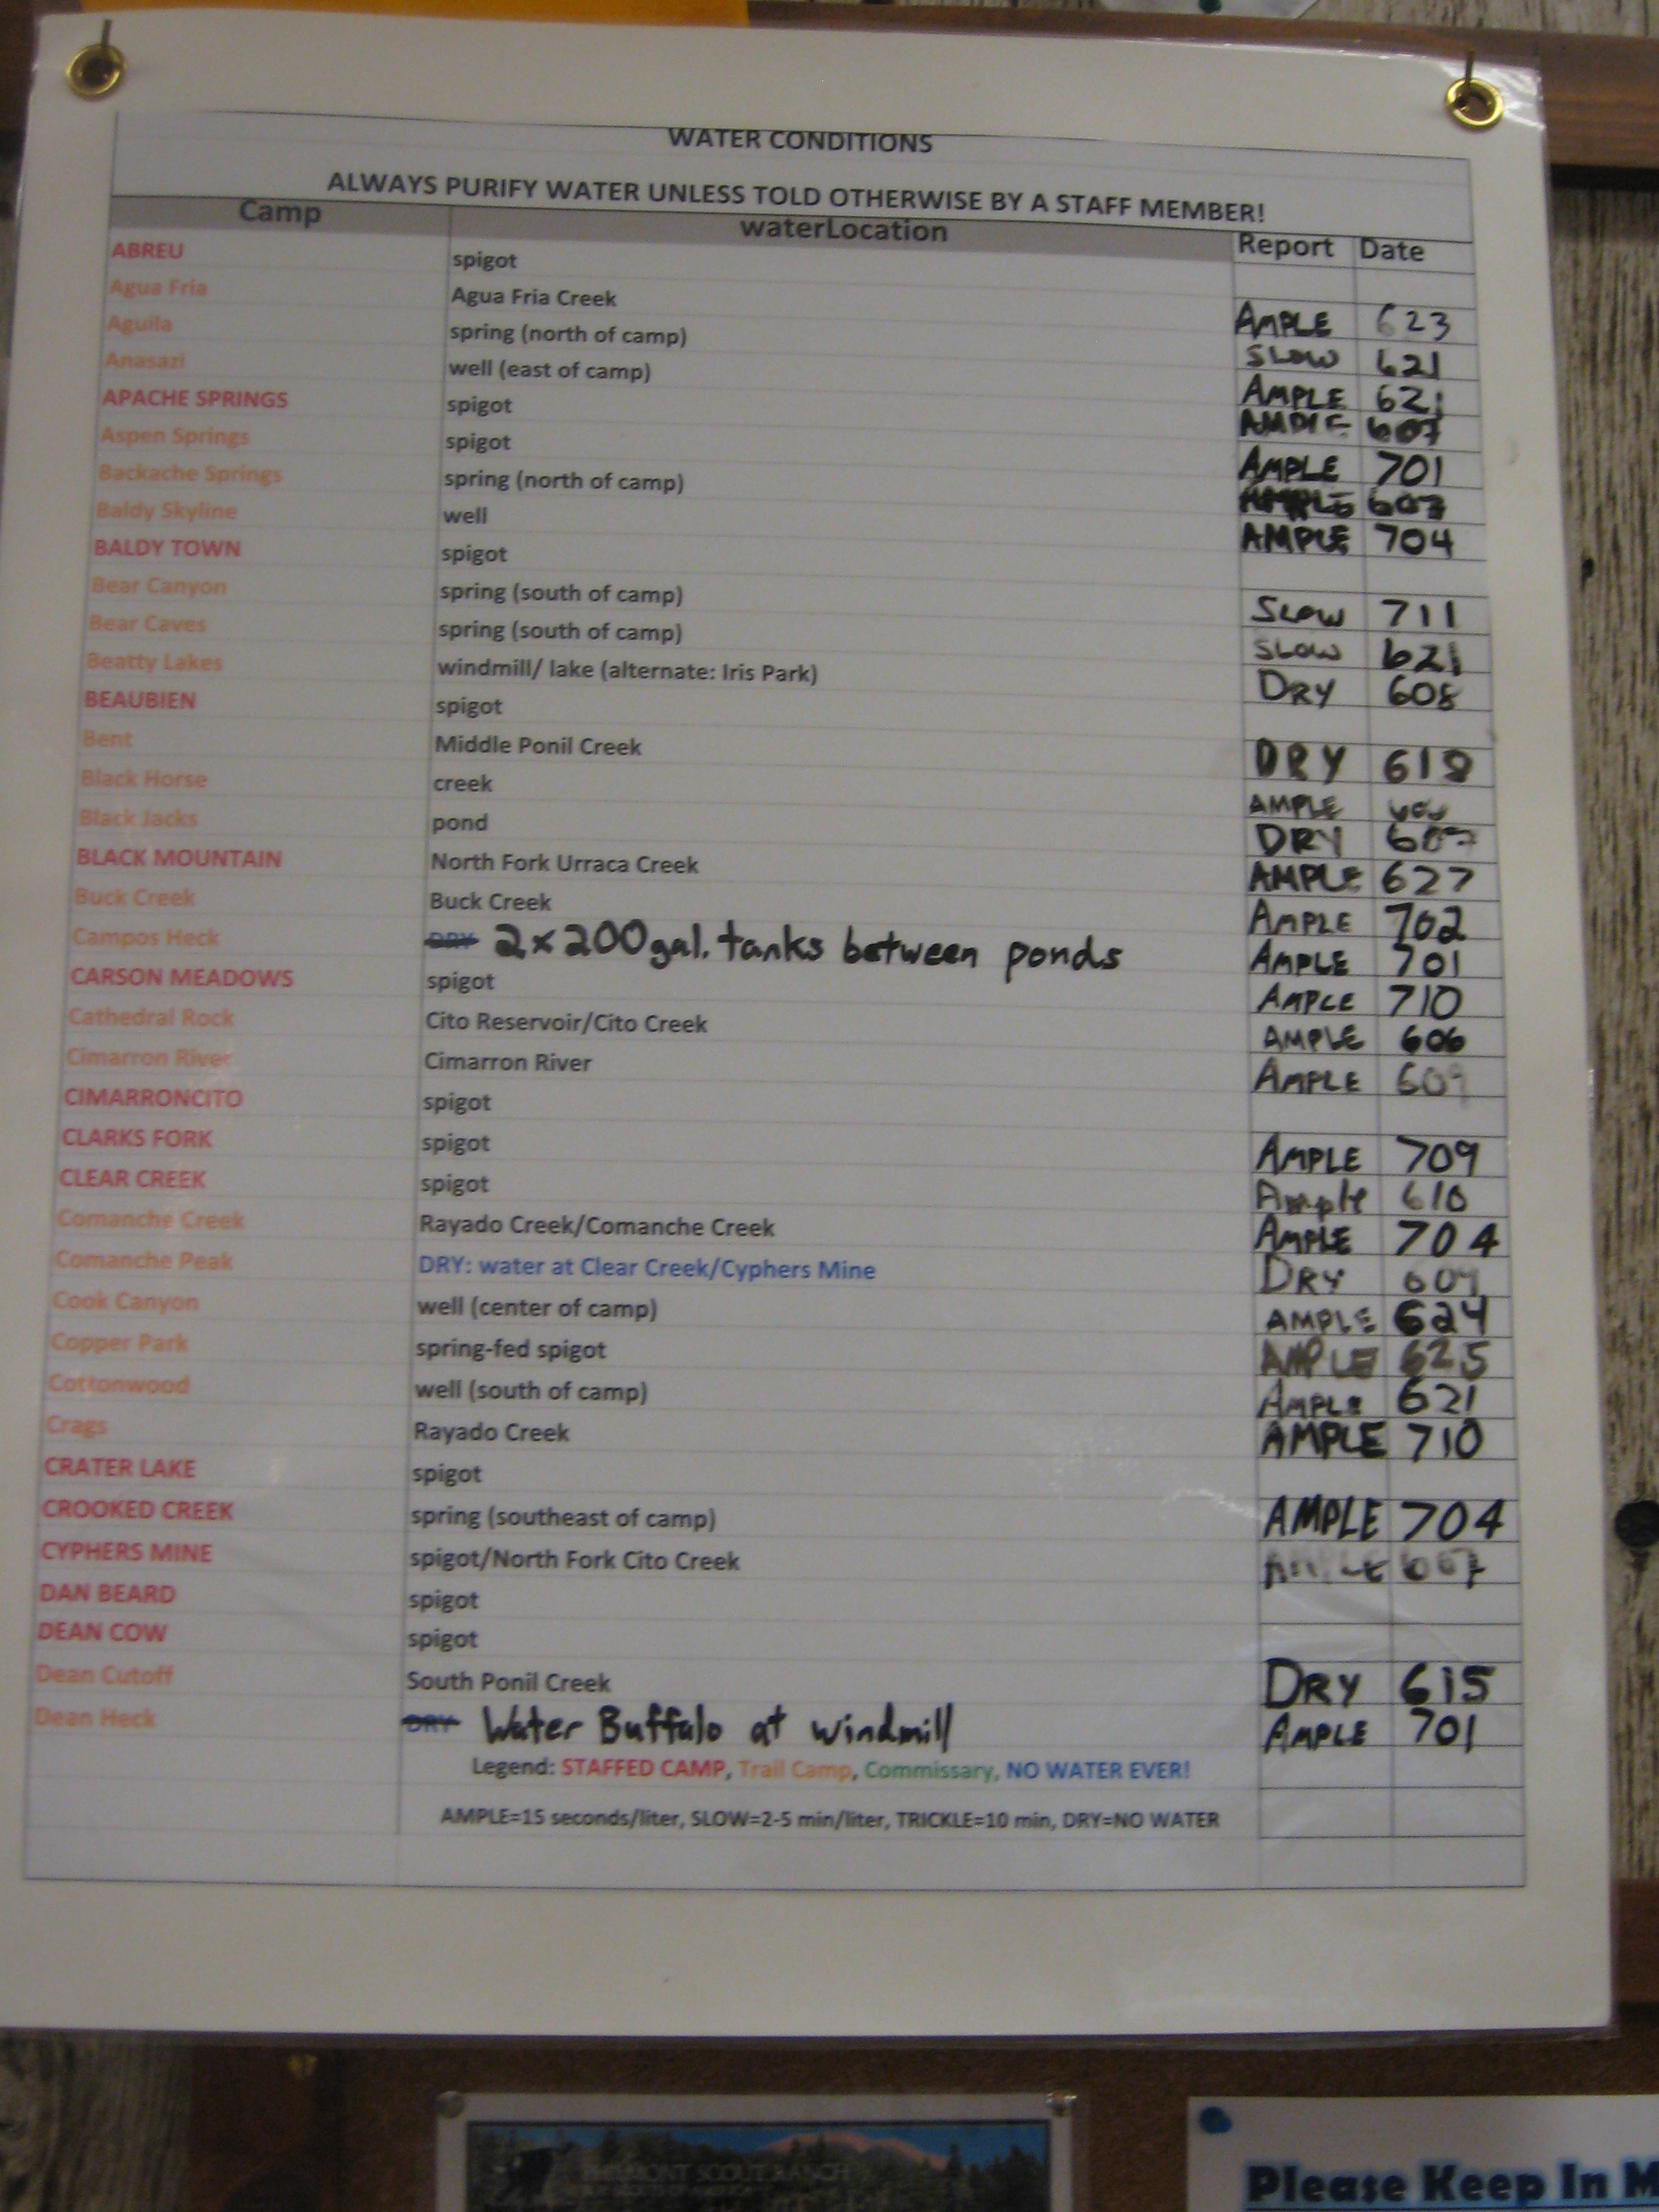 WATER CONDITIONS
ALWAYS PURIFY WATER UNLESS TOLD OTHERWISE BY A STAFF MEMBER!
Camp waterLocation Report Date
ABREU spigot
Agua Fria Agua Fria Creek AMPLE 623
Aguila spring (north of camp) SLOW 621
Anasazi well (east of camp) AMPLE 621
APACHE SPRINGS spigot AMPLE 607
Aspen Springs spigot AMPLE 701
Backache Springs spring (north of camp) AMPLE 607
Baldy Skyline well AMPLE 704
BALDY TOWN spigot
Bear Canyon spring (south of camp) SLOW 711
Bear Caves spring (south of camp) SLOW 621
Beatty Lakes windmill/ lake (alternate: Iris Park) DRY 608
BEAUBIEN spigot
Bent Middle Ponil Creek DRY 618
Black Horse creek AMPLE
Black Jacks pond DRY 607
BLACK MOUNTAIN North Fork Urraca Creek AMPLE 627
Buck Creek Buck Creek AMPLE 702
Campos Heck DRY 2x200gal. tanks between ponds AMPLE 701
CARSON MEADOWS spigot AMPLE 710
Cathedral Rock Cito Reservoir/Cito Creek AMPLE 606
Cimarron River Cimarron River AMPLE 609
CIMARRONCITO spigot
CLARKS FORK spigot AMPLE 709
CLEAR CREEK spigot Ample 610
Comanche Creek Rayado Creek/Comanche Creek AMPLE 704
Comanche Peak DRY: water at Clear Creek/Cyphers Mine DRY 609
Cook Canyon well (center of camp) AMPLE 624
Copper Park spring-fed spigot AMPLE 625
Cottonwood well (south of camp) AMPLE 621
Crags Rayado Creek AMPLE 710
CRATER LAKE spigot
CROOKED CREEK spring (southeast of camp) AMPLE 704
CYPHERS MINE spigot/North Fork Cito Creek AMPLE 607
DAN BEARD spigot
DEAN COW spigot
Dean Cutoff South Ponil Creek DRY 615
Dean Heck DRY Water Buffalo at windmill AMPLE 701
Legend: STAFFED CAMP, Trail Camp, Commissary, NO WATER EVER!
AMPLE=15 seconds/liter, SLOW=2-5 min/liter, TRICKLE=10 min, DRY=NO WATER
PHILMONT SCOUT RANCH
Please Keep In